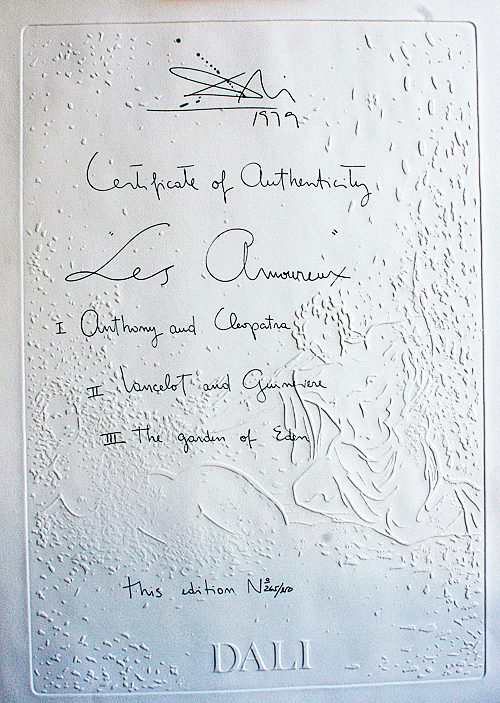 Dali
1979
Certificate of Authenticity
"Les Amoureux"
I Anthony and Cleopatra
II Lancelot and Guinevere
III The garden of Eden
This edition Nº
DALI